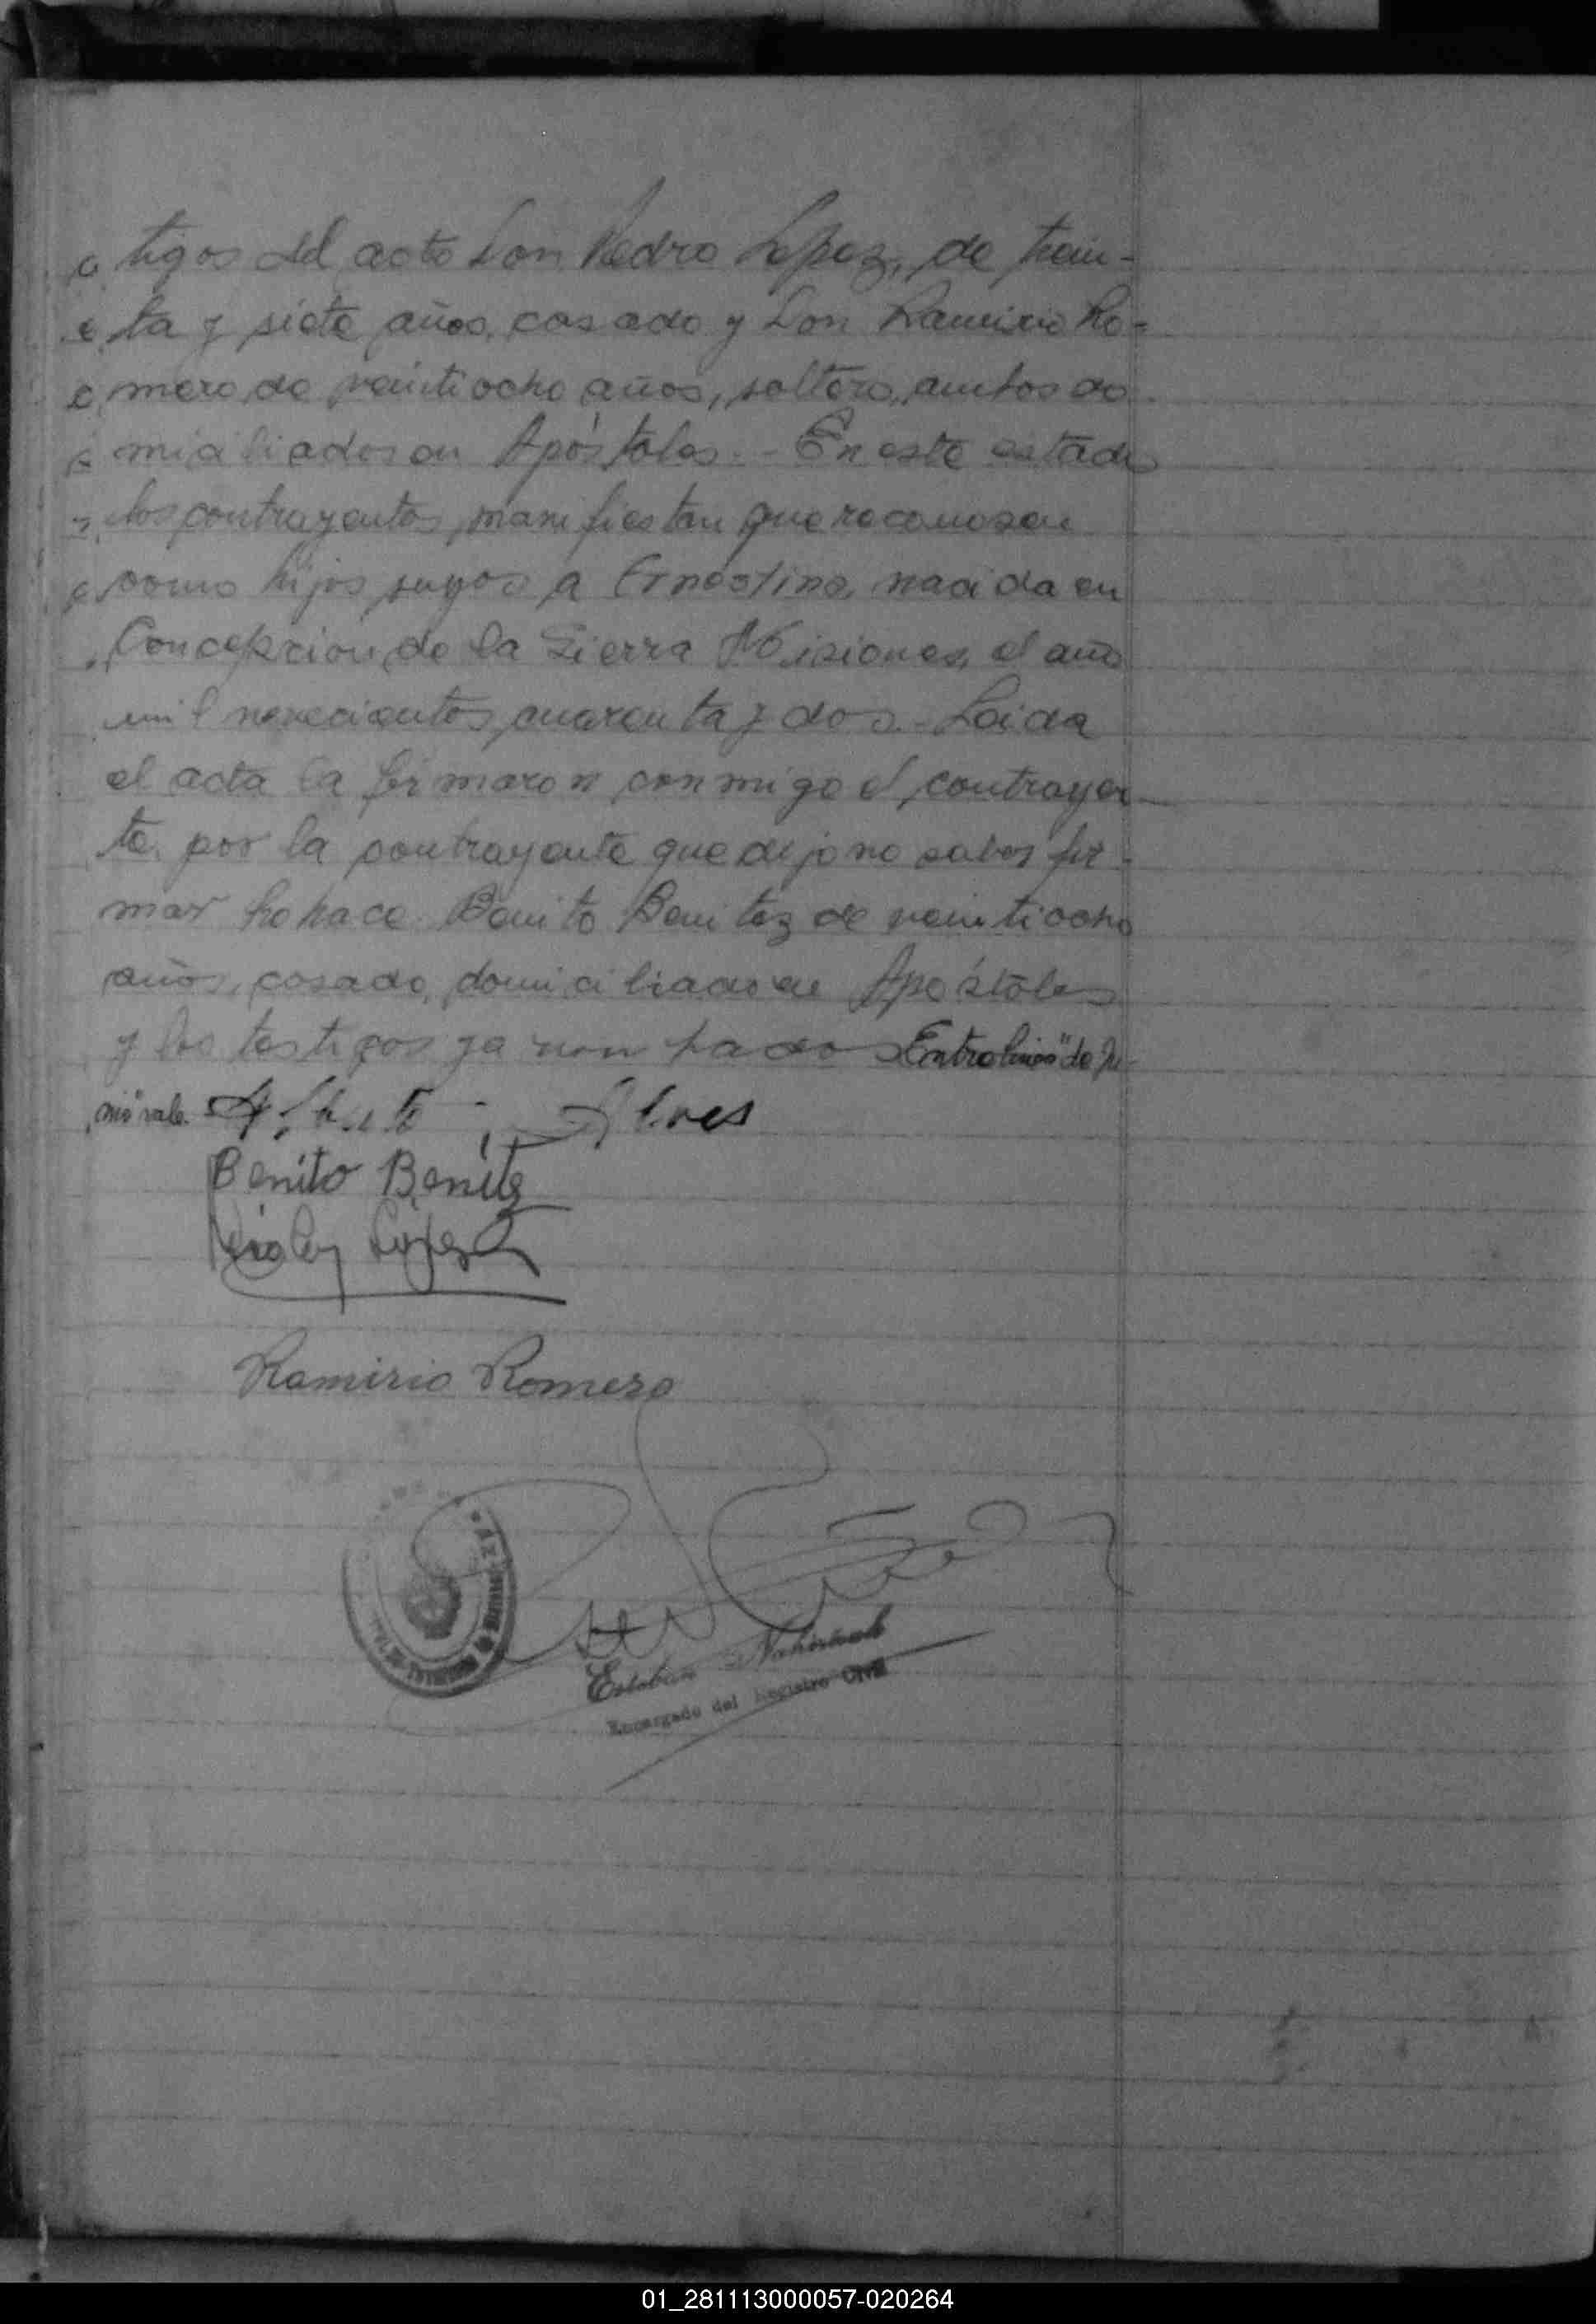 tigos del acto Don Pedro Lopez, de trein-
ta y siete años, casado y Don Ramirio Ro-
mero, de veintiocho años, soltero, ambos do
miciliados en Apóstoles.- En este estado
los contrayentes, manifiestan que reconosen
como hijos suyos a Ernestina, nacida en
Concepcion de la Sierra Misiones, el año
mil novecientos cuarenta y dos.- Leida
el acta la firmaron conmigo el contrayen-
te, por la contrayente que dijo no saber fir-
mar lo hace Benito Benitez de veintiocho
años, casado, domiciliado en Apóstoles
y los testigos ya nombados Entrelineas "de Ju-
nio" vale. Alves
Benito Benitez
Lopez
Ramirio Romero
Esteban
Encargado del Registro Civil
01_281113000057-020264